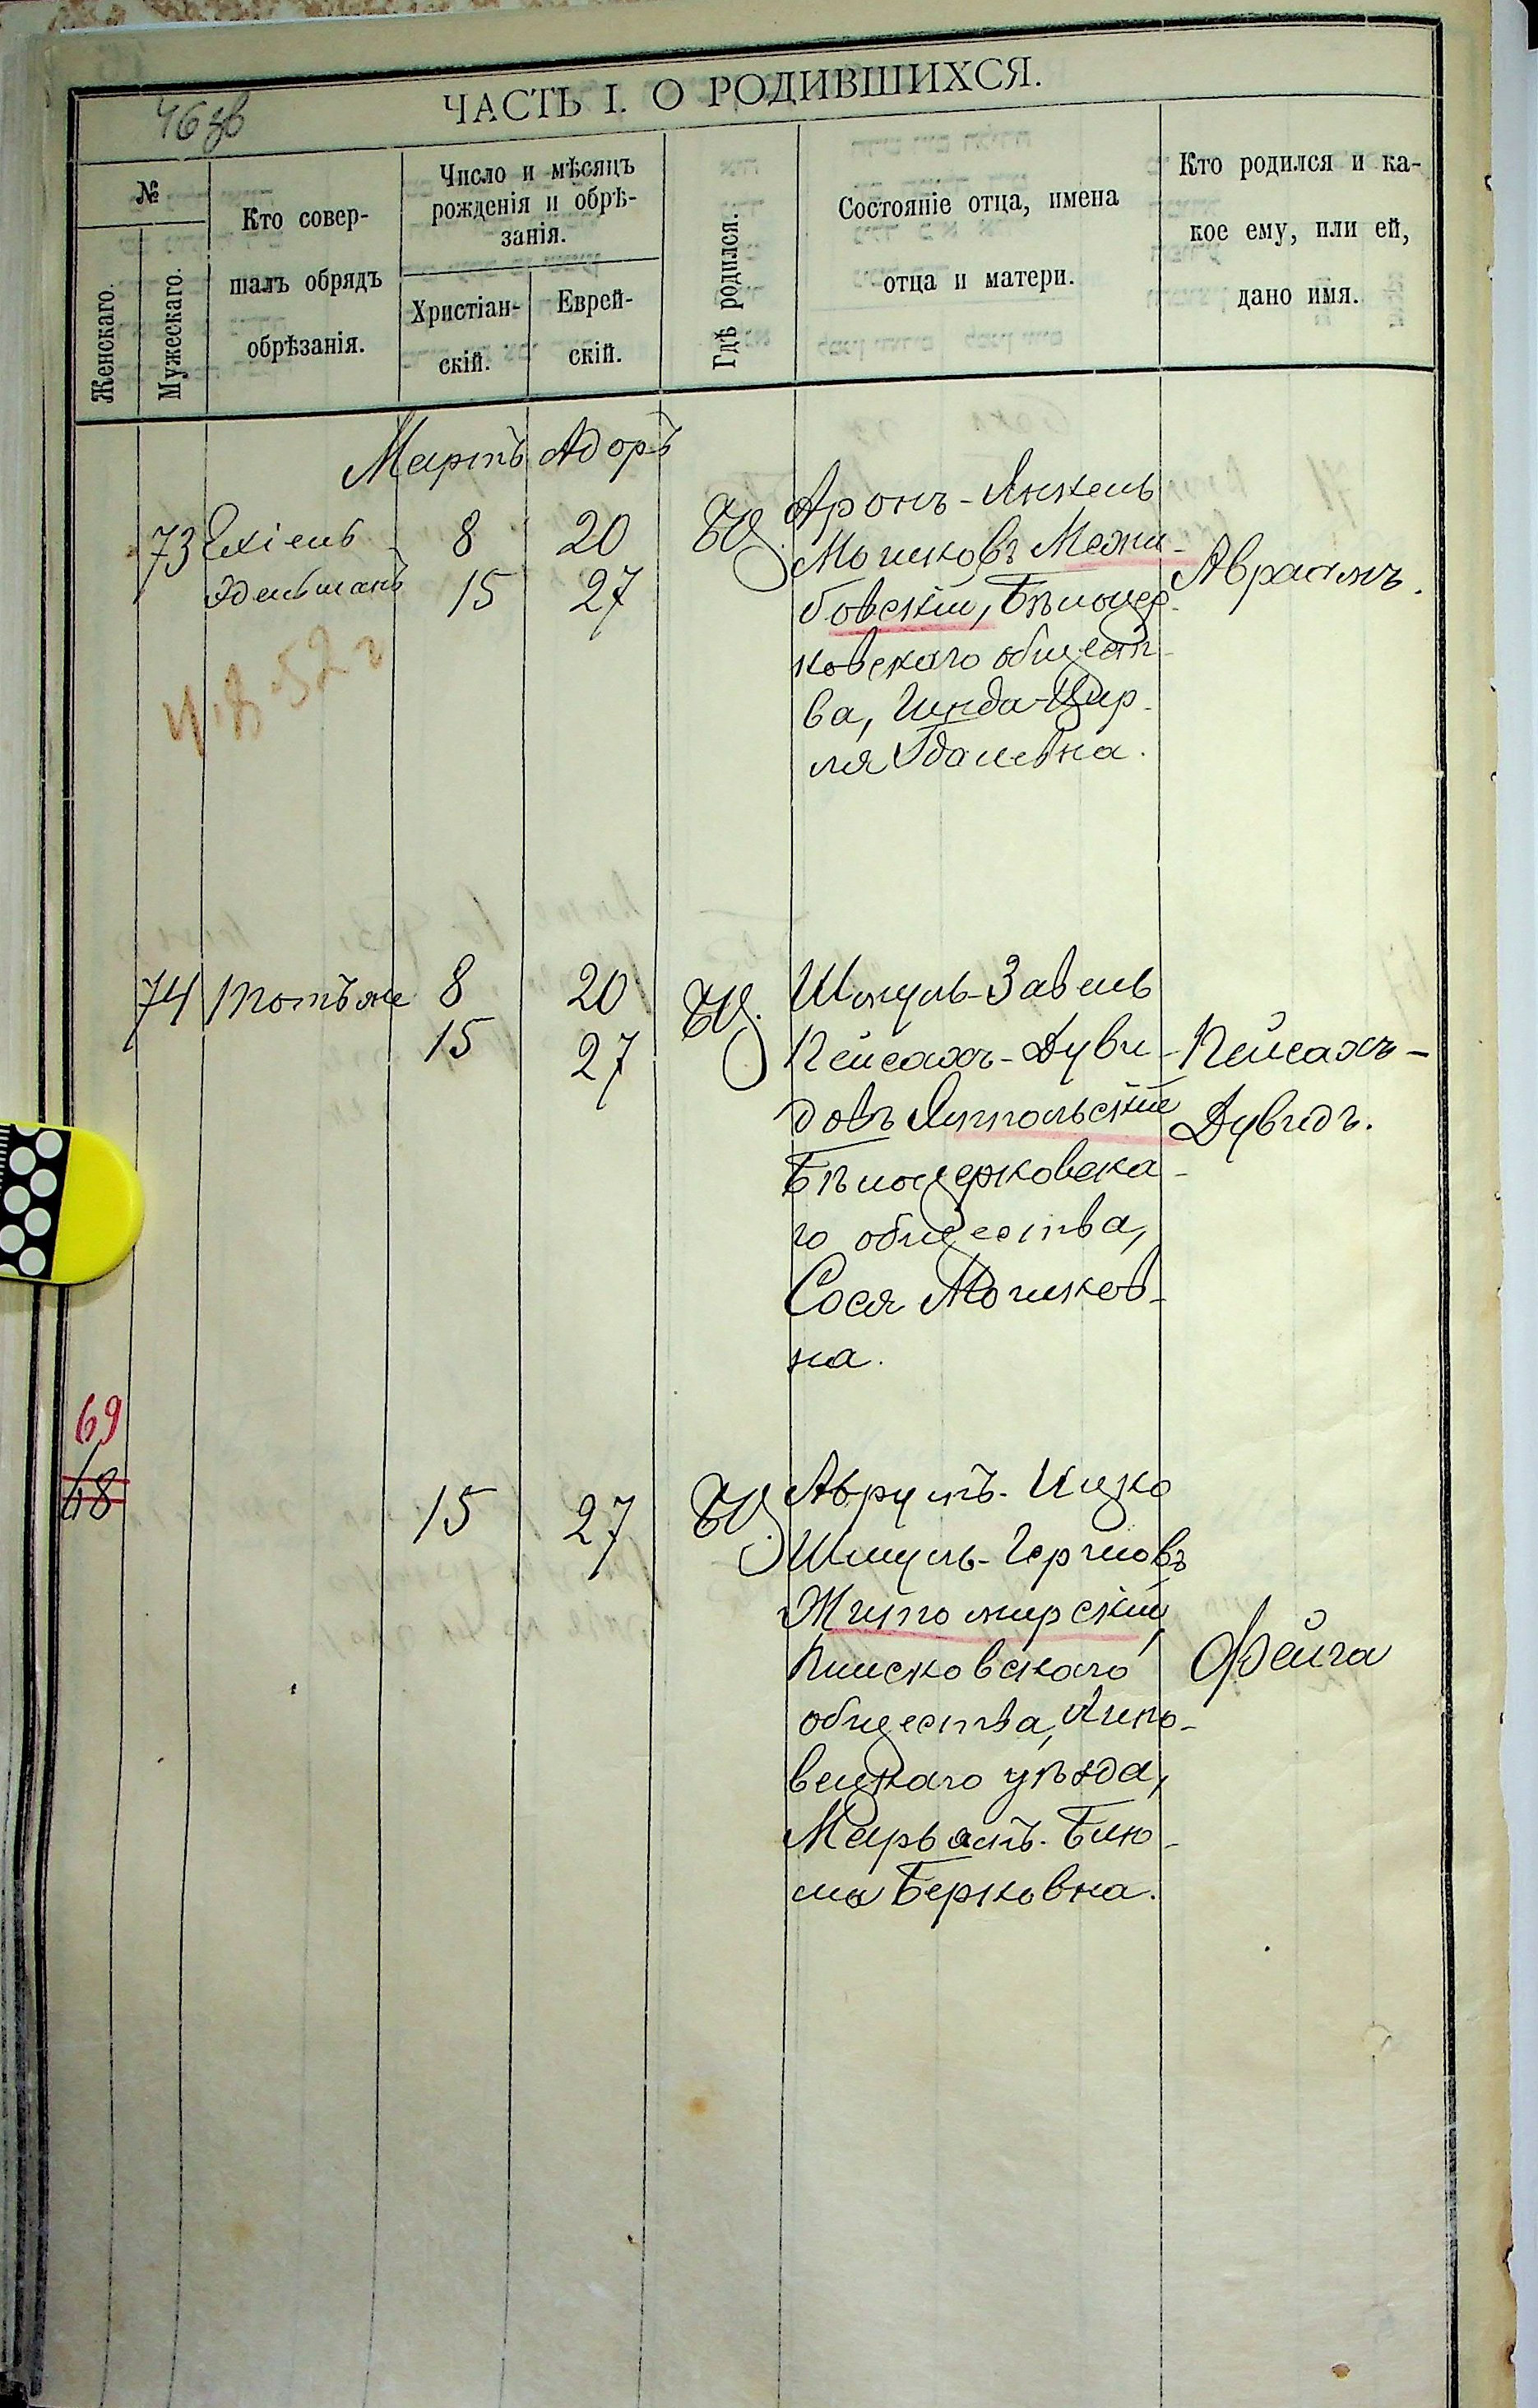 46 зв
ЧАСТЬ I. О РОДИВШИХСЯ.
№
Женскаго.
Мужескаго.
Кто совер-
шалъ обрядъ
обрѣзанія.
Число и мѣсяцъ
рожденія и обрѣ-
занія.
Христіан-
скій.
Еврей-
скій.
Гдѣ родился.
Состояніе отца, имена
отца и матери.
Кто родился и ка-
кое ему, или ей,
дано имя.
Мартъ Адоръ
73 Ехіель
Эдельманъ
8 20
15 27
БЦ.
Аронъ-Янкель
Мошковъ Межи-
бовскій, Бѣлоцер-
ковскаго общест-
ва, Гинда-Цир-
ля Гдалевна.
Авраамъ.
74 Тотъ же
8 20
15 27
БЦ.
Шмуль-Завель
Пейсахъ-Дуви-
довъ Ямпольскій
Бѣлоцерковска-
го общества,
Сося Мошков-
на.
Пейсахъ-
Дувидъ.
69
68
15 27
БЦ.
Аврумъ-Ицко
Шмуль-Гершовъ
Житомирскій,
Плисковскаго
общества, Липо-
вецкаго уѣзда,
Марьямъ-Блю-
ма Берковна.
Фейга